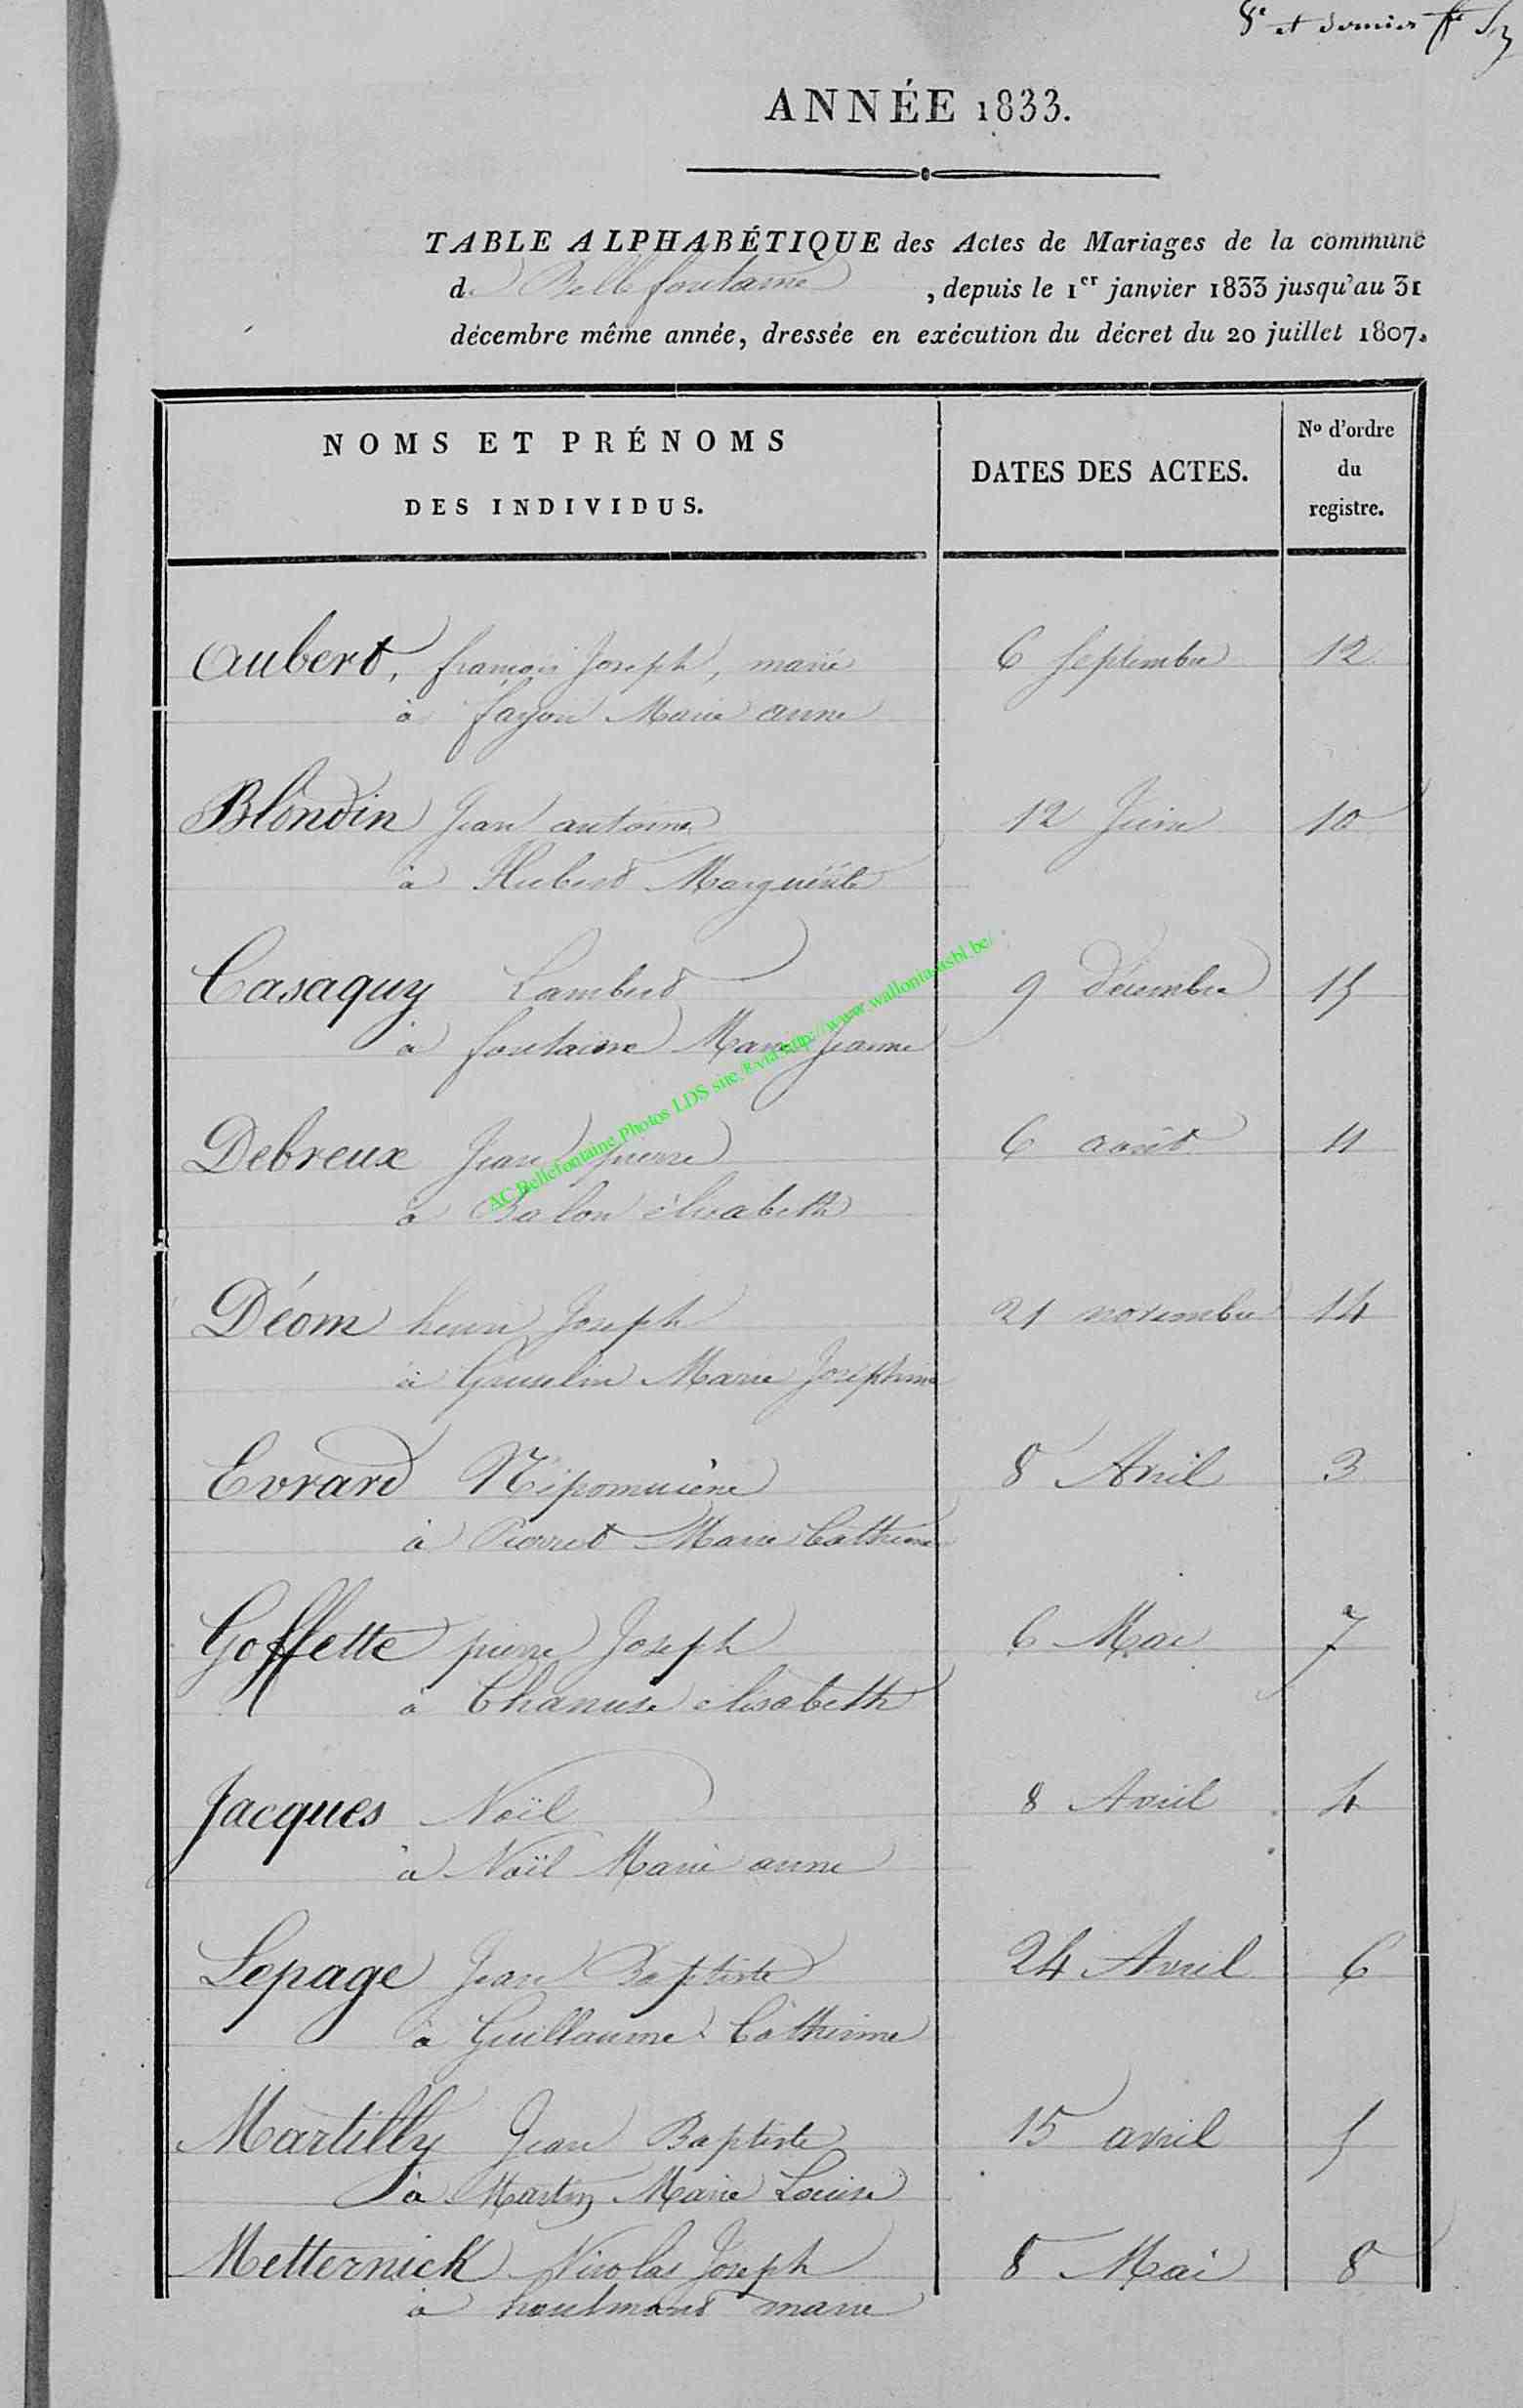 8e et dernier
ANNÉE 1833.
TABLE ALPHABÉTIQUE des Actes de Mariages de la commune
d. Bellefontaine, depuis le 1er janvier 1833 jusqu'au 31
décembre même année, dressée en exécution du décret du 20 juillet 1807.
NOMS ET PRÉNOMS
DES INDIVIDUS.
DATES DES ACTES.
No d'ordre
du
registre.
Aubert, françois Joseph, marié 6 Septembre 12
à fayon Marie anne
Blondin Jean antoine 12 Juin 10
à Hubert Marguérite
Casaquy Lambert 9 décembre 15
à fontaine Marie Jeanne
Debreux Jean pierre 6 août 11
à Balon élisabeth
Déom henri Joseph 21 novembre 14
à Gruselin Marie Josephine
Evrard Népomucène 8 Avril 3
à Pierret Marie Catherine
Goffette pierre Joseph 6 Mai 7
à Chanuse élisabeth
Jacques Noël 8 Avril 4
à Noël Marie anne
Lepage Jean Baptiste 24 Avril 6
à Guillaume Catherine
Martilly Jean Baptiste 15 avril 5
à Martin Marie Louise
Metternick Nicolas Joseph 8 Mai 8
à marie
AC Bellefontaine Photos LDS site via http://www.wallonia-asbl.be/